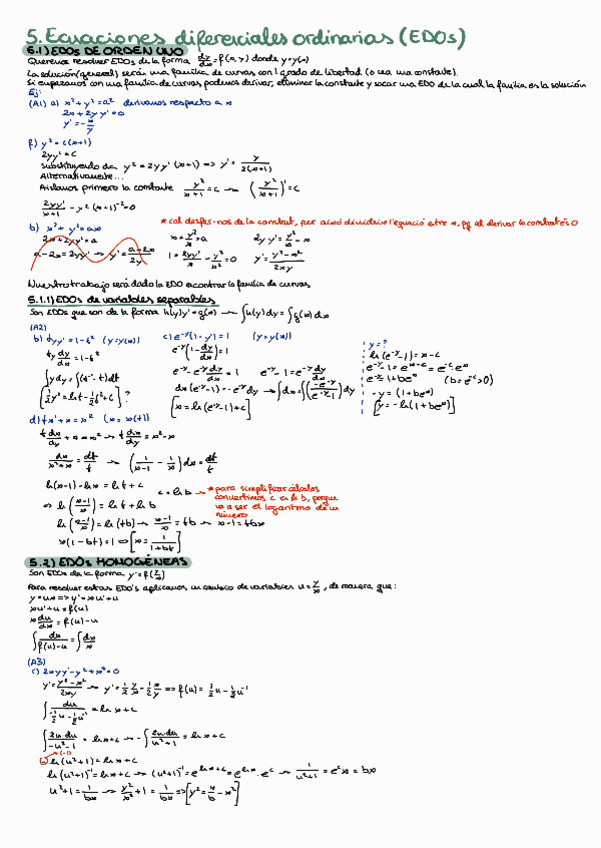 5. Ecuaciones diferenciales ordinarias (EDOs)
5.1) EDOs DE ORDEN UNO
Queremos resolver EDOs de la forma dy/dx = f(x,y) donde y=y(x)
La solución (general) serán una familia de curvas con 1 grado de libertad (o sea una constante).
Si empezamos con una familia de curvas podemos derivar, eliminar la constante y sacar una EDO de la cual la familia es la solución
Ej:
(A1) a) x² + y² = a² derivamos respecto a x
2x + 2yy' = 0
y' = -x/y
f) y² = c(x+1)
2yy' = c
Substituyendo y² = 2yy'(x+1) => y' = y/2(x+1)
Alternativamente...
Aislamos primero la constante y²/x+1 = c → (y²/x+1)' = c
2yy'/x+1 - y²(x+1)⁻² = 0
b) x² + y² = ax
* cal desfer-nos de la constant, per això dividim l'equació entre x, pq al derivar la constant és 0
2x + 2yy' = a
a - 2x = 2yy' → y' = a-2x/2y
x + y²/x = a
1 + 2yy'/x - y²/x² = 0
2yy' = y²/x - x
y' = y²-x²/2xy
Nuestro trabajo será dado la EDO encontrar la familia de curvas
5.1.1) EDOs de variables separables
Son EDOs que son de la forma h(y)y' = g(x) → ∫h(y)dy = ∫g(x)dx
(A2)
b) tyy' = 1-t² (y=y(t))
ty dy/dt = 1-t²
∫y dy = ∫(t⁻¹-t)dt
[½y² = ln t - ½t² + c] ?
c) e⁻ʸ(1-y') = 1 (y=y(x))
e⁻ʸ(1 - dy/dx) = 1
e⁻ʸ - e⁻ʸ dy/dx = 1 e⁻ʸ - 1 = e⁻ʸ dy/dx
dx(e⁻ʸ-1) = e⁻ʸ dy → ∫dx = ∫(e⁻ʸ/e⁻ʸ-1)dy
[x = ln(e⁻ʸ-1) + c]
y = ?
ln(e⁻ʸ-1) = x-c
e⁻ʸ-1 = eˣ⁻ᶜ = e⁻ᶜ·eˣ
e⁻ʸ = 1 + beˣ (b = e⁻ᶜ > 0)
-y = (1+beˣ)
[y = -ln(1+beˣ)]
d) tx' + x = x² (x = x(t))
t dx/dy + x = x² → t dx/dy = x²-x
dx/x²+x = dt/t → (1/x-1 - 1/x)dx = dt/t
ln(x-1) - ln x = ln t + c
=> ln(x-1/x) = ln t + ln b
c = ln b → * para simplificar cálculos
convertimos c en ln b, porque
va a ser el logaritmo de un
número
ln(x-1/x) = ln(tb) → x-1/x = tb → x-1 = tbx
x(1-bt) = 1 => [x = 1/1+bt]
5.2) EDOs HOMOGÉNEAS
Son EDOs de la forma y' = f(y/x)
Para resolver estas EDO's aplicamos un cambio de variables u = y/x, de manera que:
y = ux => y' = xu' + u
xu' + u = f(u)
x du/dx = f(u) - u
∫ du/f(u)-u = ∫ dx/x
(A3)
c) 2xyy' - y² + x² = 0
y' = y²-x²/2xy → y' = ½ y/x - ½ x/y => f(u) = ½u - ½u⁻¹
∫ du/-½u-½u⁻¹ = ln x + c
∫ 2u du/-u²-1 = ln x + c → -∫ 2u du/u²+1 = ln x + c
(-1)
-ln(u²+1) = ln x + c
ln(u²+1)⁻¹ = ln x + c → (u²+1)⁻¹ = e^(ln x + c) = e^(ln x)·eᶜ → 1/u²+1 = eᶜx = bx
u²+1 = 1/bx → y²/x² + 1 = 1/bx => [y² = x/b - x²]